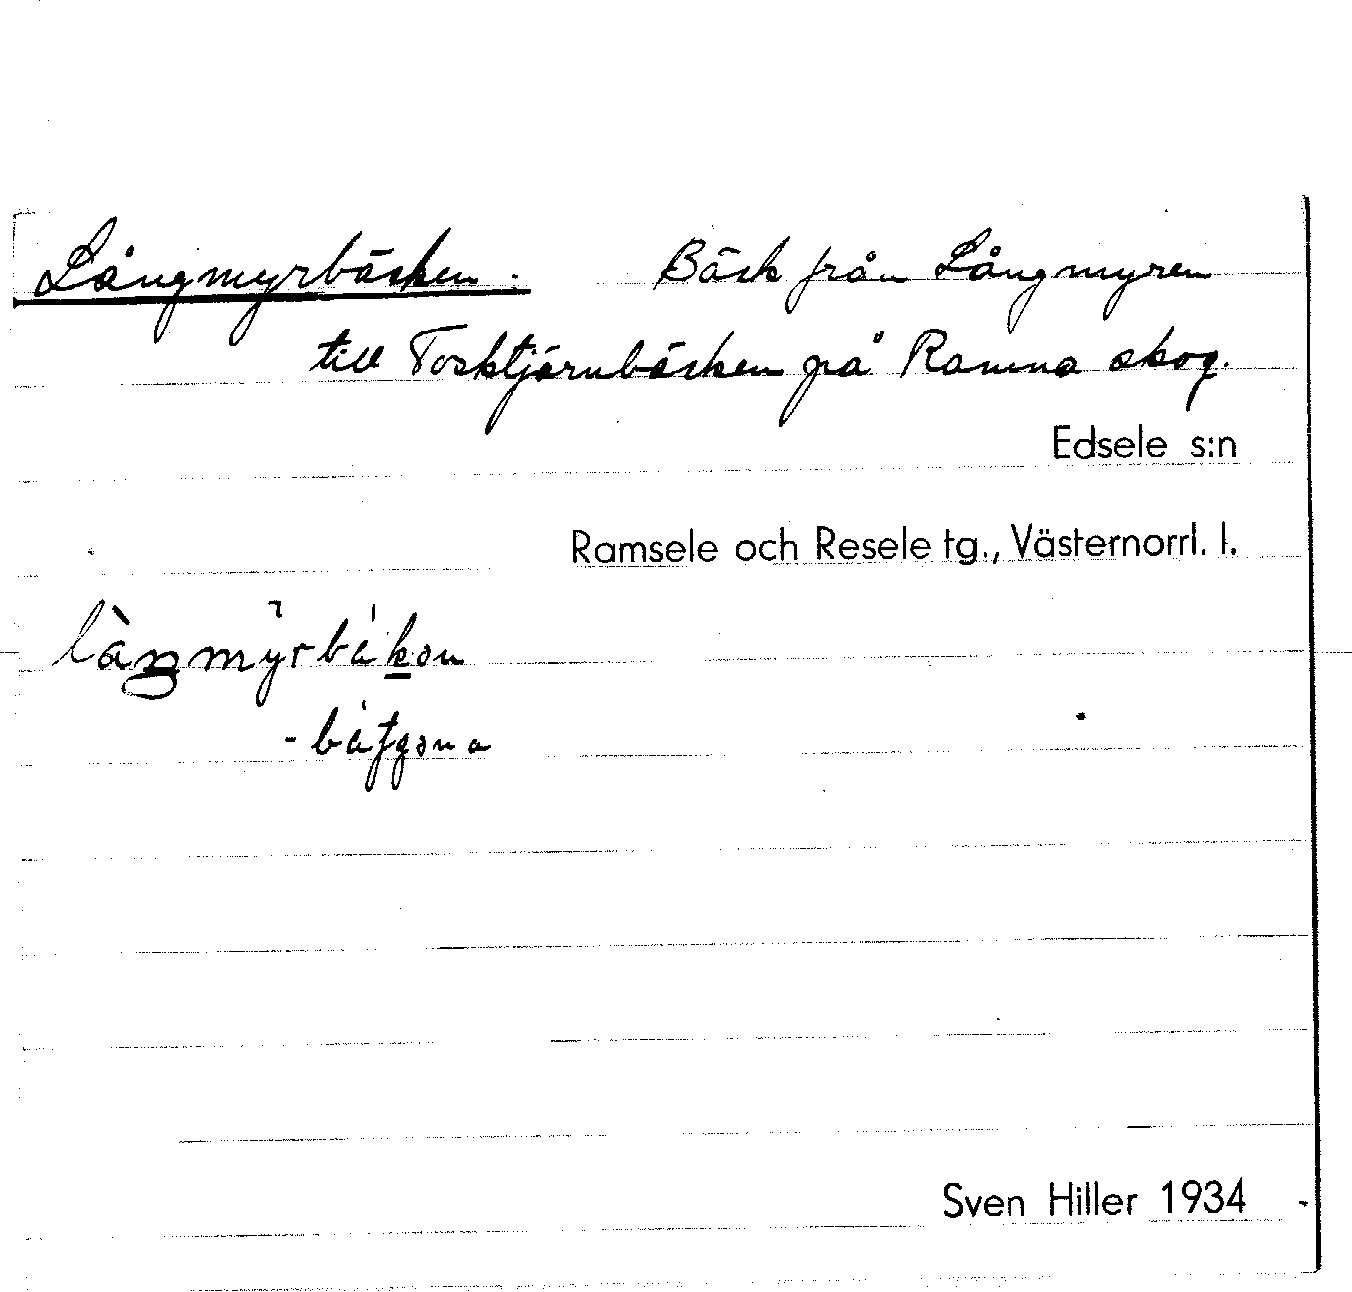 Långmyrbäcken. Bäck från Långmyren
till Torsktjärnbäcken på Ramna skog.
Edsele s:n
Ramsele och Resele tg., Västernorrl. l.
Sven Hiller 1934